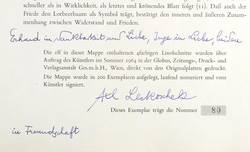 schneller als in Wirklichkeit, als letztes und krönendes Blatt folgt (11). Daß auch
der Friede den Lorbeerbaum als Symbol trägt, bestätigt den inneren und äußeren Zusam-
menhang zwischen Widerstand und Frieden.
Erhard in Dankbarkeit und Liebe, Inge in Liebe
Die elf in dieser Mappe enthaltenen Linolschnitte wurden über
Auftrag des Künstlers im Sommer 1964 in der Globus, Zeitungs-, Druck-
und Verlagsanstalt Ges.m.b.H., Wien, direkt von den Originalplatten gedruckt.
Die Mappe wurde in 200 Exemplaren aufgelegt, laufend numeriert und vom
Künstler signiert.
Dieses Exemplar trägt die Nummer 80
in Freundschaft